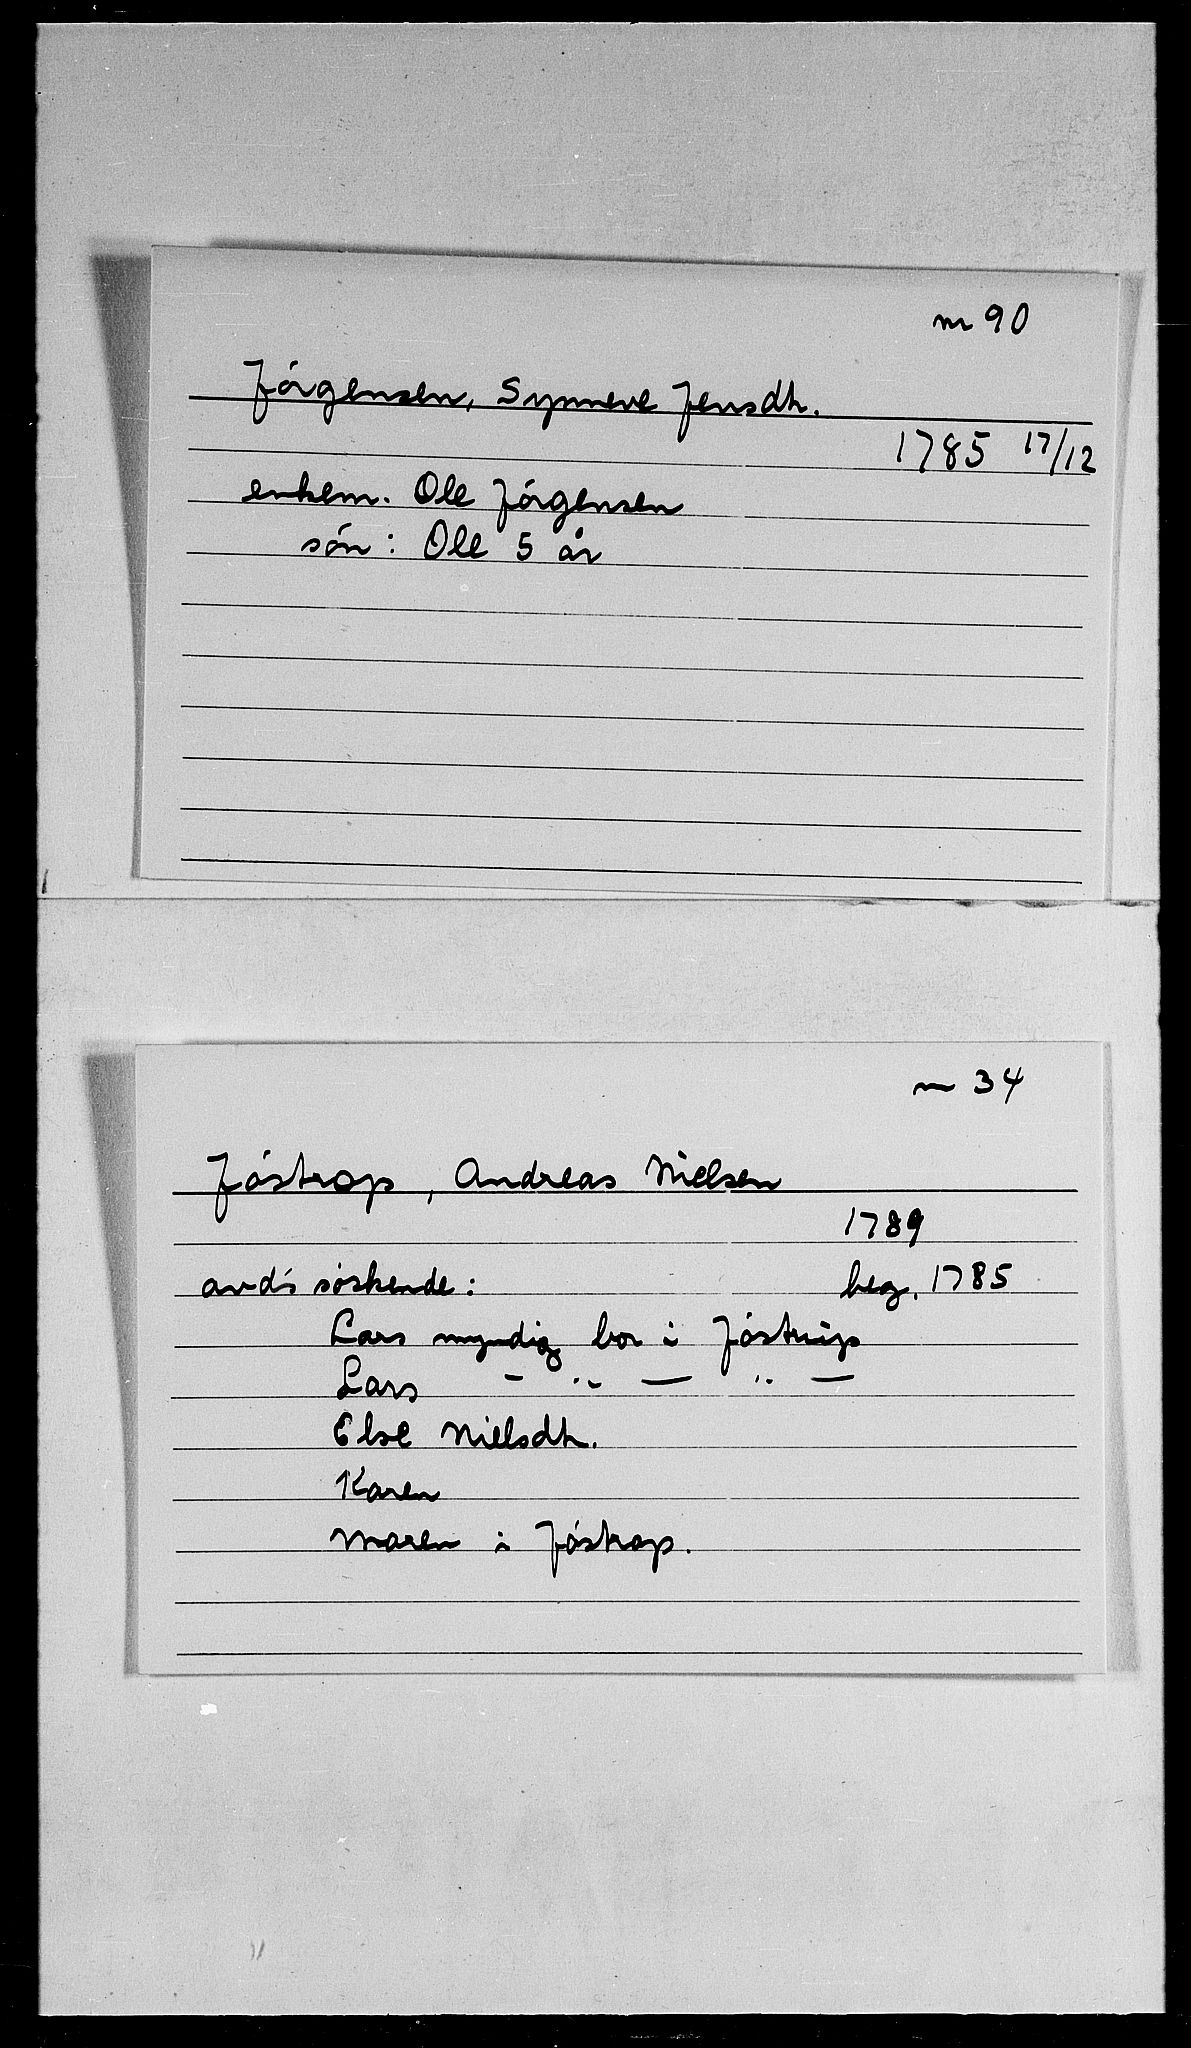 nr 90
Jörgensen, Synneve Jensdtr.
1785 17/12
enkem. Ole Jörgensen
sön: Ole 5 år
nr 34
Jöstrop, Andreas Nielsen
1789
avd's söskende: beg. 1785
Lars myndig bor i Jöstrup
Lars - ,, — ,, —
Else Nielsdtr.
Karen
Maren i Jöstrop.